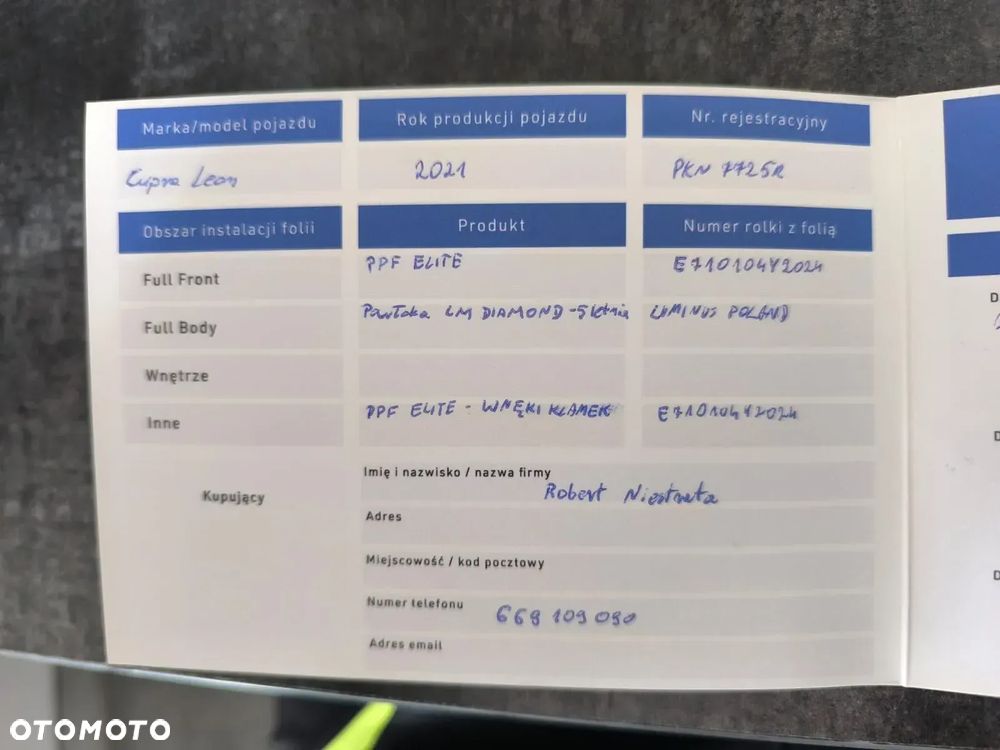 Marka/model pojazdu
Rok produkcji pojazdu
Nr. rejestracyjny
Cupra Leon
2021
PKN 7725R
Obszar instalacji folii
Produkt
Numer rolki z folią
Full Front
PPF ELITE
E710104Y2024
Full Body
Powłoka LM DIAMOND - 5 letnia
LUMINUS POLAND
Wnętrze
Inne
PPF ELITE - WNĘKI KLAMEK
E710104Y2024
Kupujący
Imię i nazwisko / nazwa firmy
Robert
Adres
Miejscowość / kod pocztowy
Numer telefonu
669 109 090
Adres email
OTOMOTO